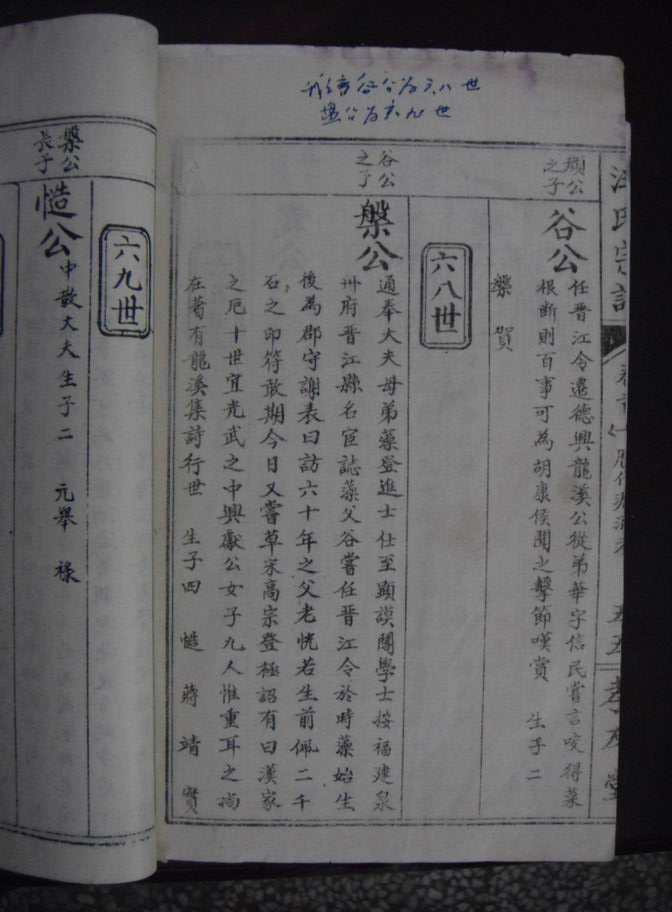 公为六八世
盤公为六九世
汪氏宗譜
五五
之子
谷公
任晋江令遷德興龍溪公從弟華字信民嘗言咬得菜
根断則百事可為胡康侯聞之擊節嘆賞 生子二
槃 賀
六八世
谷公
之子
槃公
通奉大夫母弟藻登進士仕至顕謨閣學士按福建泉
州府晋江縣名宦誌藻父谷嘗任晋江令於時藻始生
後為郡守謝表曰訪六十年之父老恍若生前佩二千
石之印符敢期今日又嘗草宋高宗登極詔有曰漢家
之厄十世宜光武之中興獻公女子九人惟重耳之尚
在著有龍溪集詩行世 生子四 愷 蔣 靖 實
六九世
槃公
長子
愷公
中散大夫生子二 元舉 祿